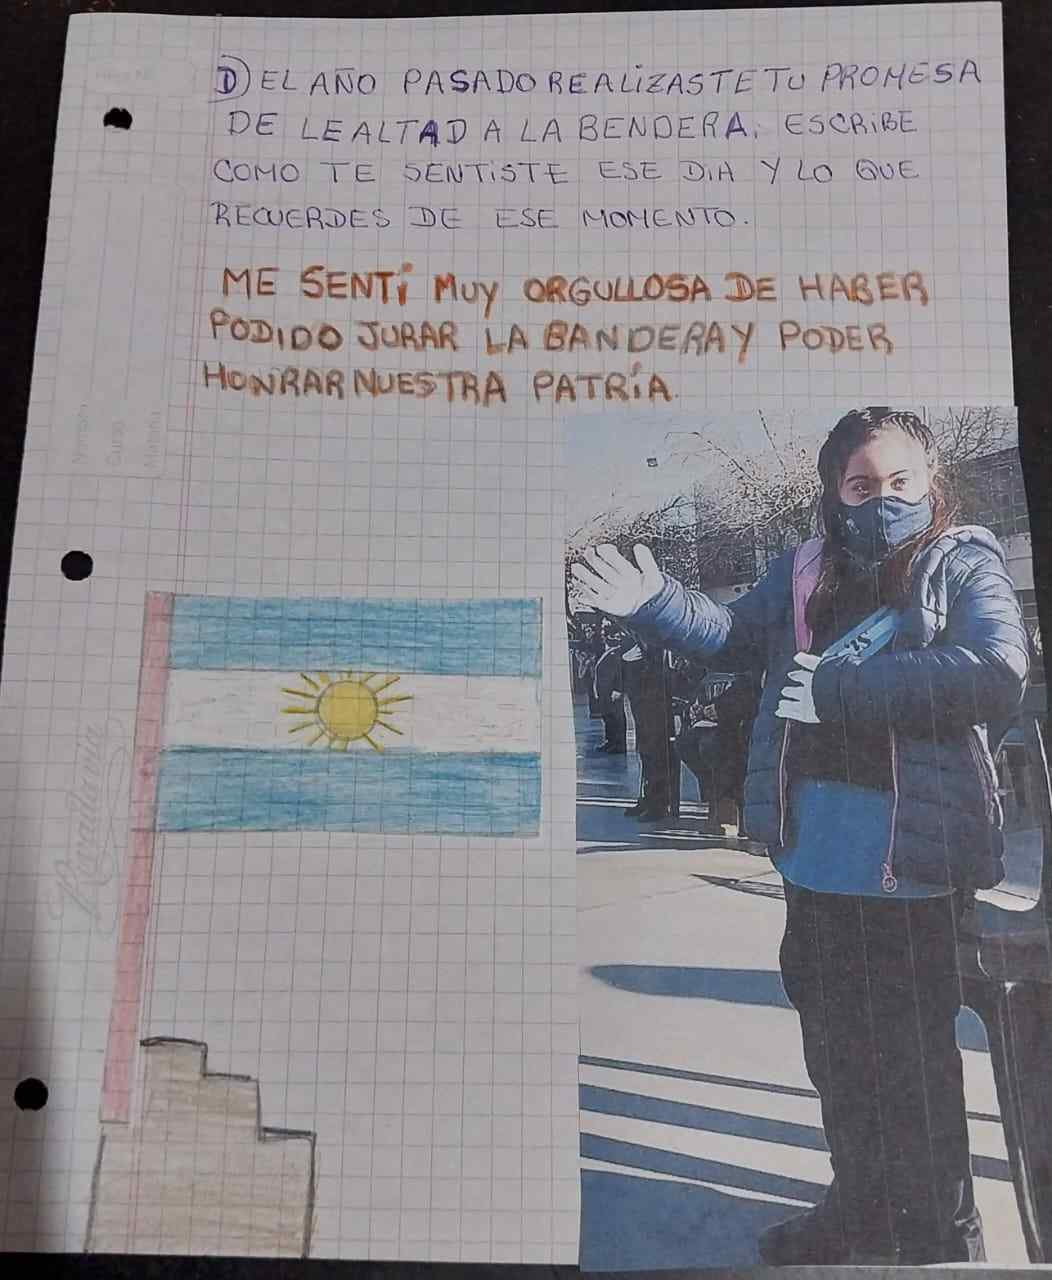 D) EL AÑO PASADO REALIZASTE TU PROMESA
DE LEALTAD A LA BENDERA. ESCRIBE
COMO TE SENTISTE ESE DIA Y LO QUE
RECUERDES DE ESE MOMENTO.
ME SENTÍ MUY ORGULLOSA DE HABER
PODIDO JURAR LA BANDERA Y PODER
HONRAR NUESTRA PATRÍA.
Rivadavia